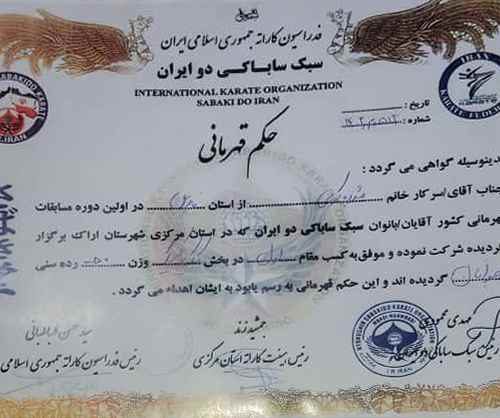 فدراسیون کاراته جمهوری اسلامی ایران
سبک ساباکی دو ایران
INTERNATIONAL KARATE ORGANIZATION
SABAKI DO IRAN
IRAN
KARATE FEDE
تاریخ :
شماره :
حکم قهرمانی
دینوسیله گواهی می گردد :
ناب آقای/سرکار خانم از استان در اولین دوره مسابقات
هرمانی کشور آقایان/بانوان سبک ساباکی دو ایران که در استان مرکزی شهرستان اراک برگزار
گردیده شرکت نموده و موفق به کسب مقام در بخش وزن رده سنی
گردیده اند و این حکم قهرمانی به رسم یابود به ایشان اهداء می گردد .
مهدی
رئیس سبک ساباکی دو
جمشید زند
رئیس هیئت کاراته استان مرکزی
سید حسن طباطبائی
رئیس فدراسیون کاراته جمهوری اسلامی
IR IRAN